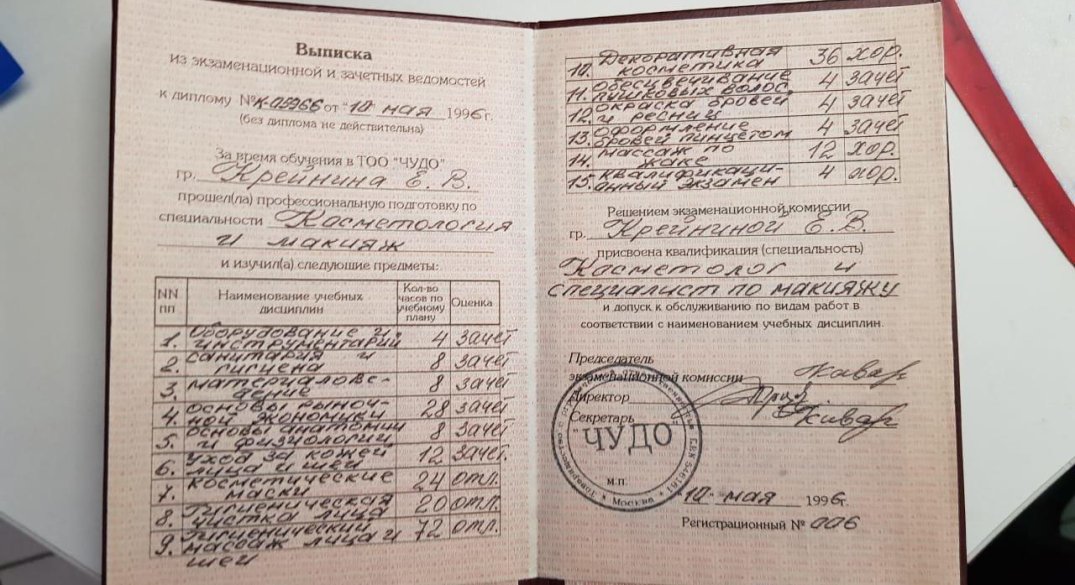 Выписка
из экзаменационной и зачетных ведомостей
к диплому № от "10" мая 1996г.
(без диплома не действительна)
За время обучения в ТОО "ЧУДО"
гр. Крейнина Е. В.
прошел(ла) профессиональную подготовку по
специальности Косметология
и макияж
и изучил(а) следующие предметы:
NN пп Наименование учебных дисциплин Кол-во часов по учебному плану Оценка
1. Оборудование и инструментарий 4 зачет
2. санитария и гигиена 8 зачет
3. материаловедение 8 зачет
4. основы рыночной экономики 28 зачет
5. основы анатомии и физиологии 8 зачет
6. Уход за кожей лица и шеи 12 зачет
7. косметические маски 24 отл.
8. Гигиеническая чистка лица 20 отл.
9. Гигиенический массаж лица и шеи 72 отл.
10. Декоративная косметика 36 хор.
11. обесцвечивание пушковых волос 4 зачет
12. окраска бровей и ресниц 4 зачет
13. оформление бровей пинцетом 4 зачет
14. массаж по Жаке 12 хор.
15. квалификационный экзамен 4 хор.
Решением экзаменационной комиссии
гр. Крейниной Е. В.
присвоена квалификация (специальность)
Косметолог и
специалист по макияжу
и допуск к обслуживанию по видам работ в
соответствии с наименованием учебных дисциплин.
Председатель
экзаменационной комиссии
Директор
Секретарь
"ЧУДО"
Москва
м.п.
10 мая 1996г.
Регистрационный № 006